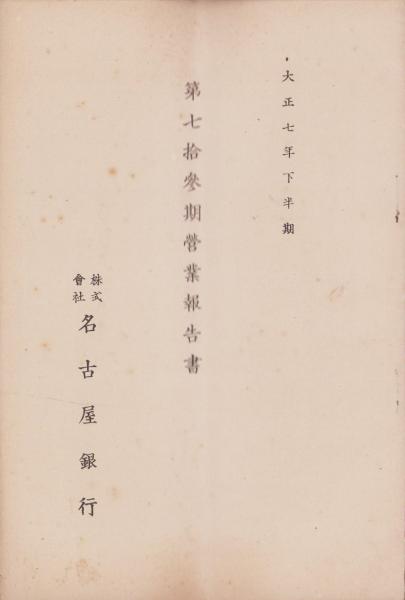 大正七年下半期
第七拾參期營業報告書
株式會社名古屋銀行